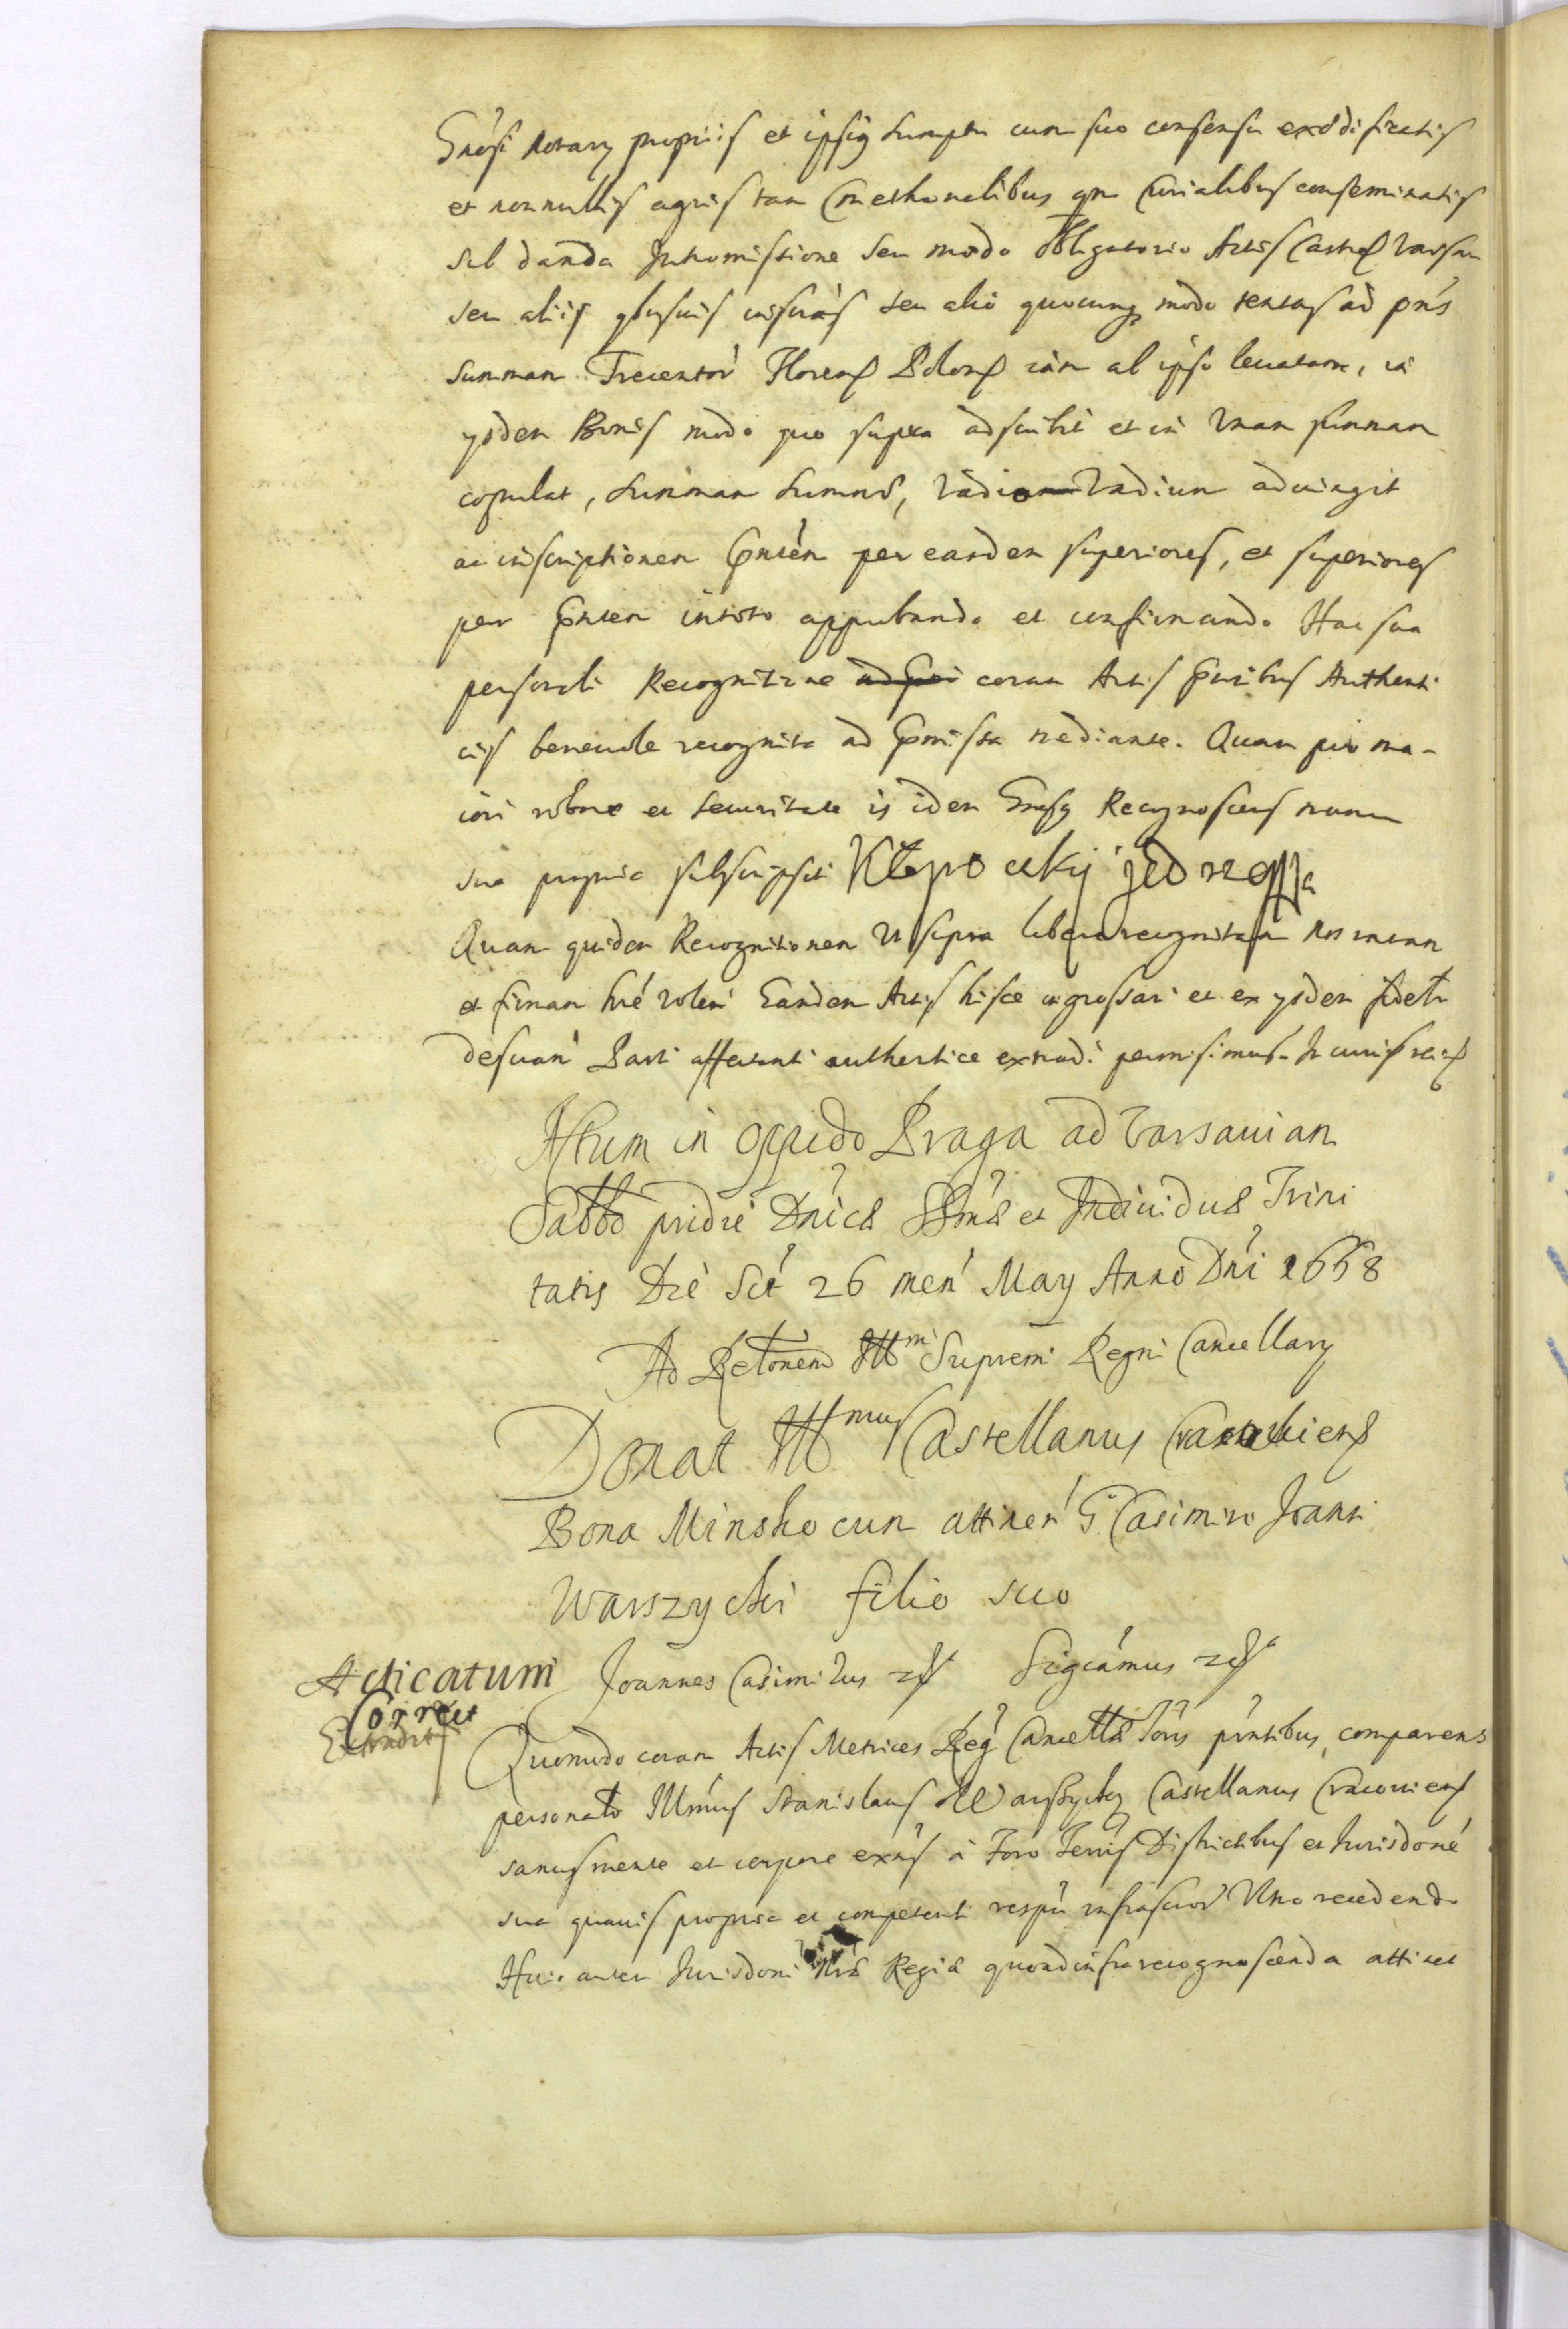 Gnosi Notarÿ proprijs et ipsiq sumptu cum suo consensu exædificatis
et nonnullis agris tam Cmethonalibus qm Curialibus conseminatis
sub danda Intromissione seu modo obligatorio Actis Castren Varsau
seu aliis qbusuis inscriás seu alio quocunq modo tentas ad pńs
summam Trecentor Floren Polon iàm ab ipso leuatam, in
ÿsdem Bonis modo quo supra adscribit et in Vnam summam
copulat, summam summæ, Vadium Vadium adiungit
ac inscriptionem pntèm per easdem superiores, et superiores
per pntem in toto approbando et confirmando Hac sua
personali Recognitione ad pri coram Actis pntibus Authenti
cis beneuole recognita ad pmissa mediante. Quam pro ma-
iori robore et securitate is idem Gnsq Recognoscens manu
sua propria subscripsit Kłopockÿ jedrzeÿ
Quam quidem Recognitionem Vt supra libere recognitam Nos ratam
et firmam hré volen Eandem Actis hisce ingrossari et ex ÿsdem fidelr
descrań Parti affectanti authentice extradi permisimus. In cuius rei
Actum in oppido Praga ad Varsauiam
Sabbo pridie Dnicæ SSmæ et Indiuiduæ Trini
tatis Die Sct 26 men May Anno Dni 1658
Ad Rełonem Illmi Supremi Regni Cancellarÿ
Donat Illmus Castellanus Cracouien
Bona Minsko cum attinen G. Casimiro Joanni
Warszycki filio suo
Acticatum
Joannes Casimirus Significamus
Correct
Extradit
Quomodo coram Actis Metrices Regi Cancellæ pnntibus comparens
personalr Illmus Stanislaus Warszycky Castellanus Cracouien
sanus mente et corpore exns à Foro Terris Districtibus et Jurisdoné
sua quauis propria et competenti respu infrascror Vno recedendo
Huic autem Jurisdoni Nræ Regiæ quoad infra recognoscenda attinet